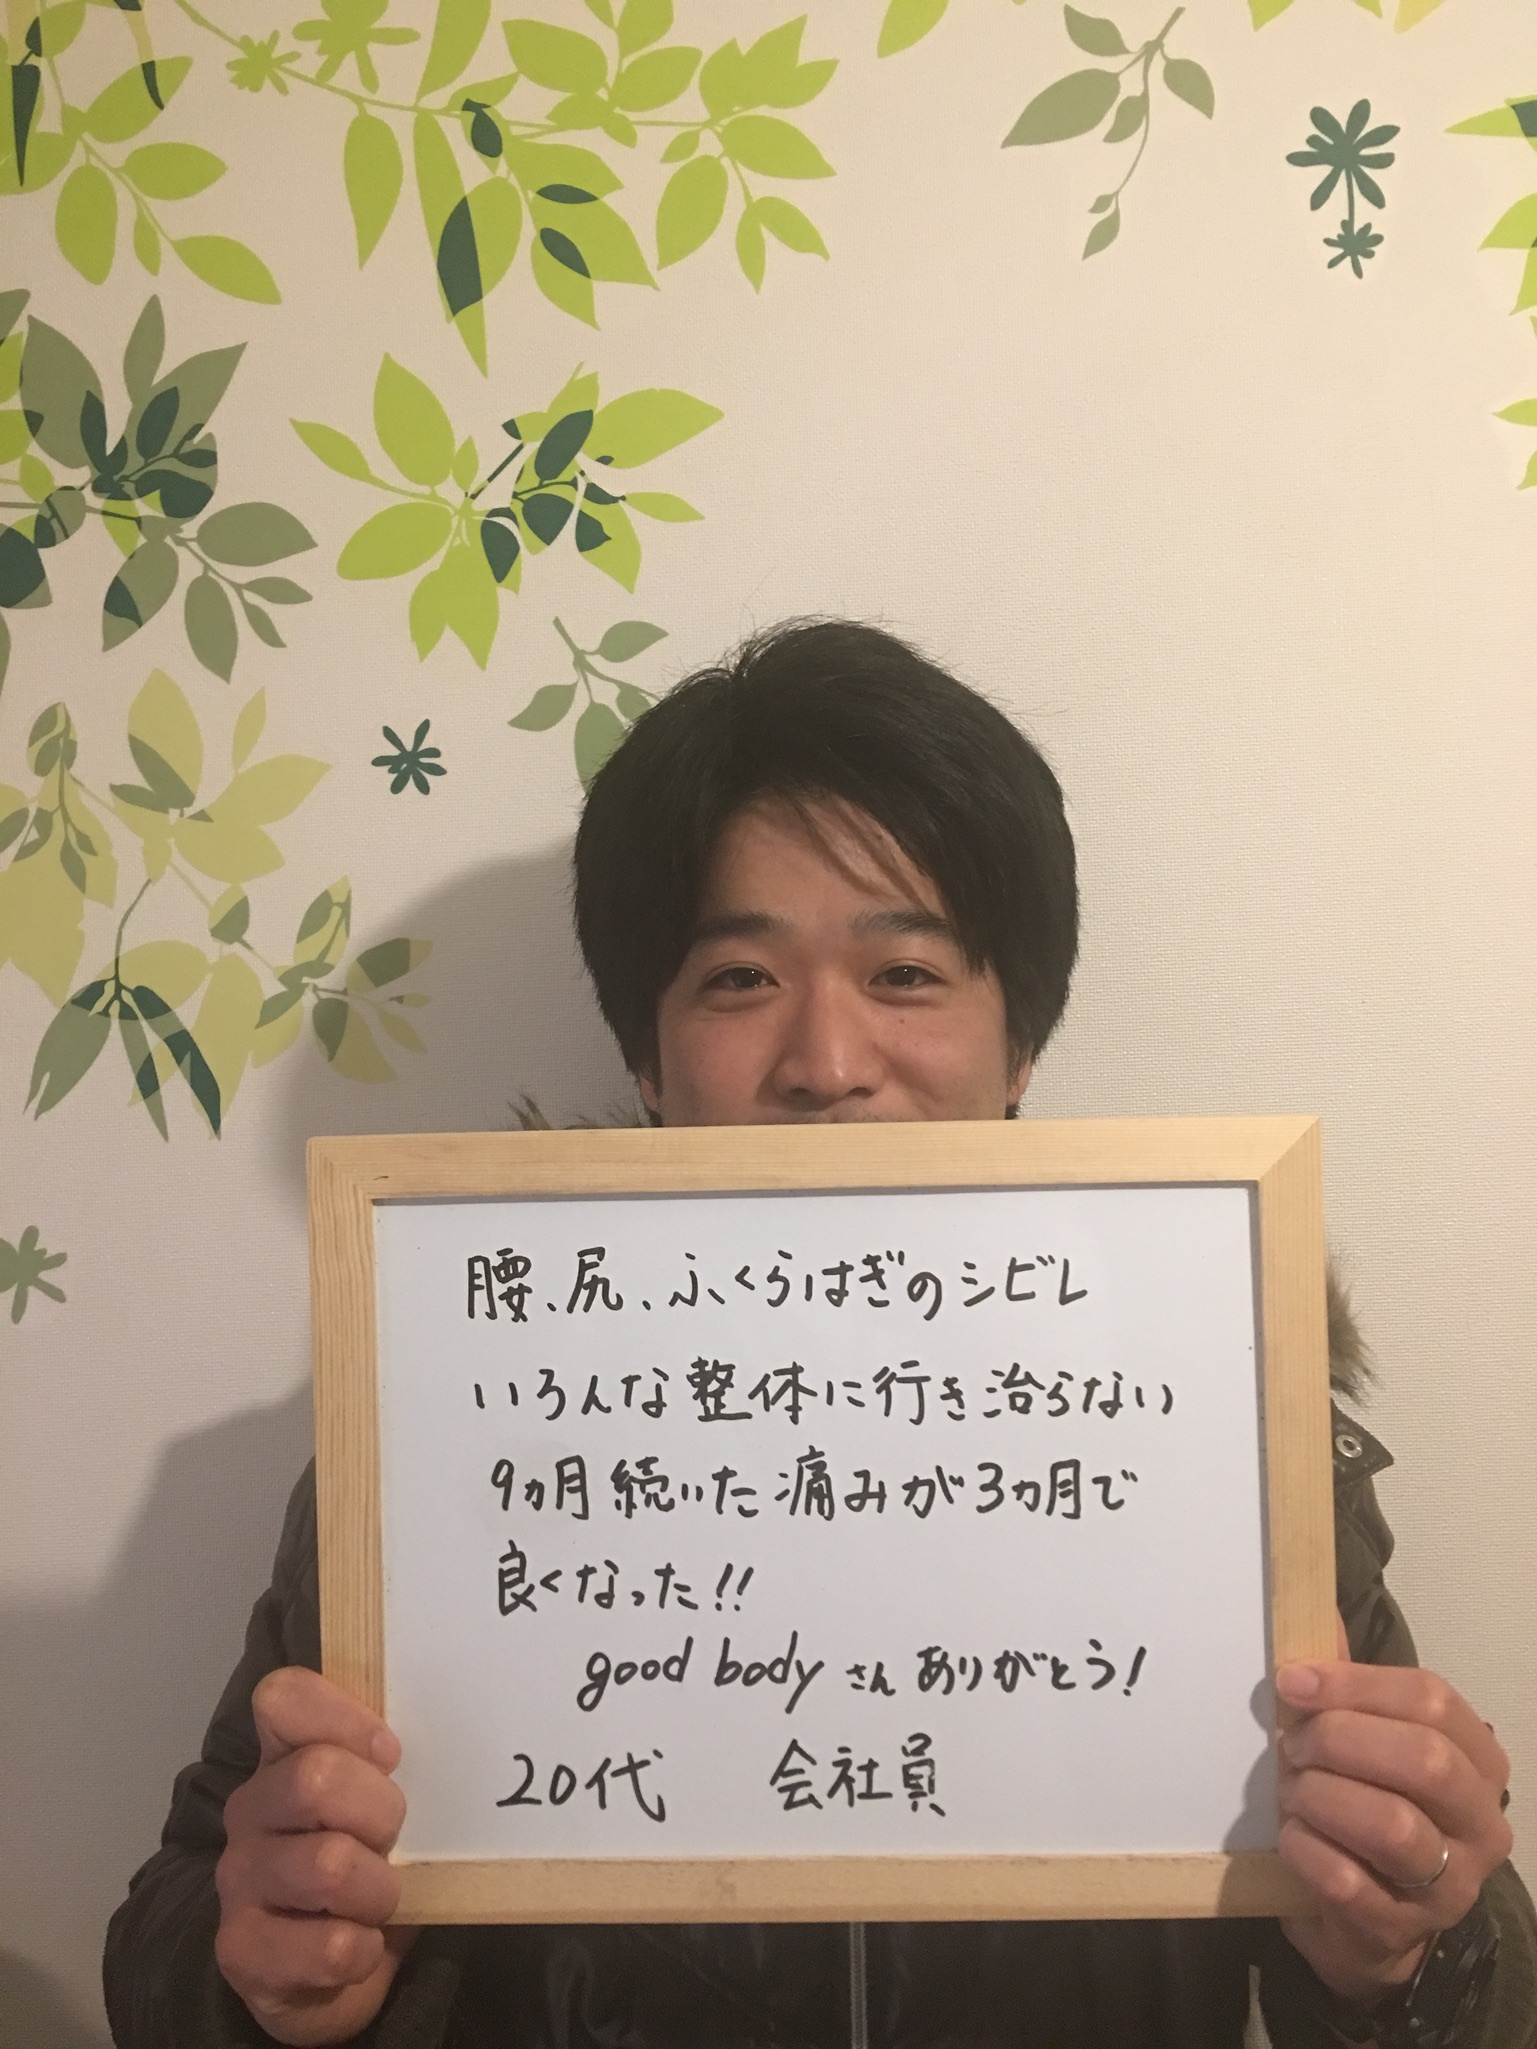 腰、尻、ふくらはぎのシビレ
いろんな整体に行き治らない
9ヵ月続いた痛みが3ヵ月で
良くなった!!
good bodyさんありがとう!
20代 会社員